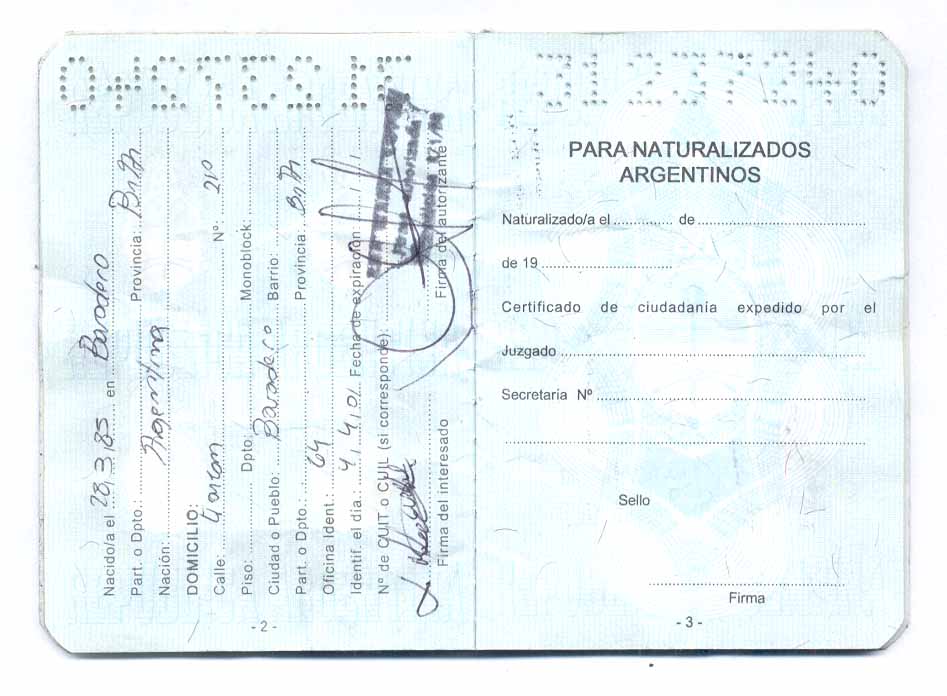 Nacido/a el 28,3,85 en Baradero
Part. o Dpto.: Provincia:
Nación: Argentina
DOMICILIO:
Calle: Nº: 210
Piso: Dpto: Monoblock:
Ciudad o Pueblo: Baradero Barrio:
Part. o Dpto.: Provincia:
Oficina Ident.: 64
Identif. el dia: 4, 4, 01 Fecha de expiración:
Nº de CUIT o CUIL (si corresponde):
Firma del interesado Firma del autorizante
- 2 -
31237240
PARA NATURALIZADOS
ARGENTINOS
Naturalizado/a el de
de 19
Certificado de ciudadanía expedido por el
Juzgado
Secretaria Nº
Sello
Firma
- 3 -